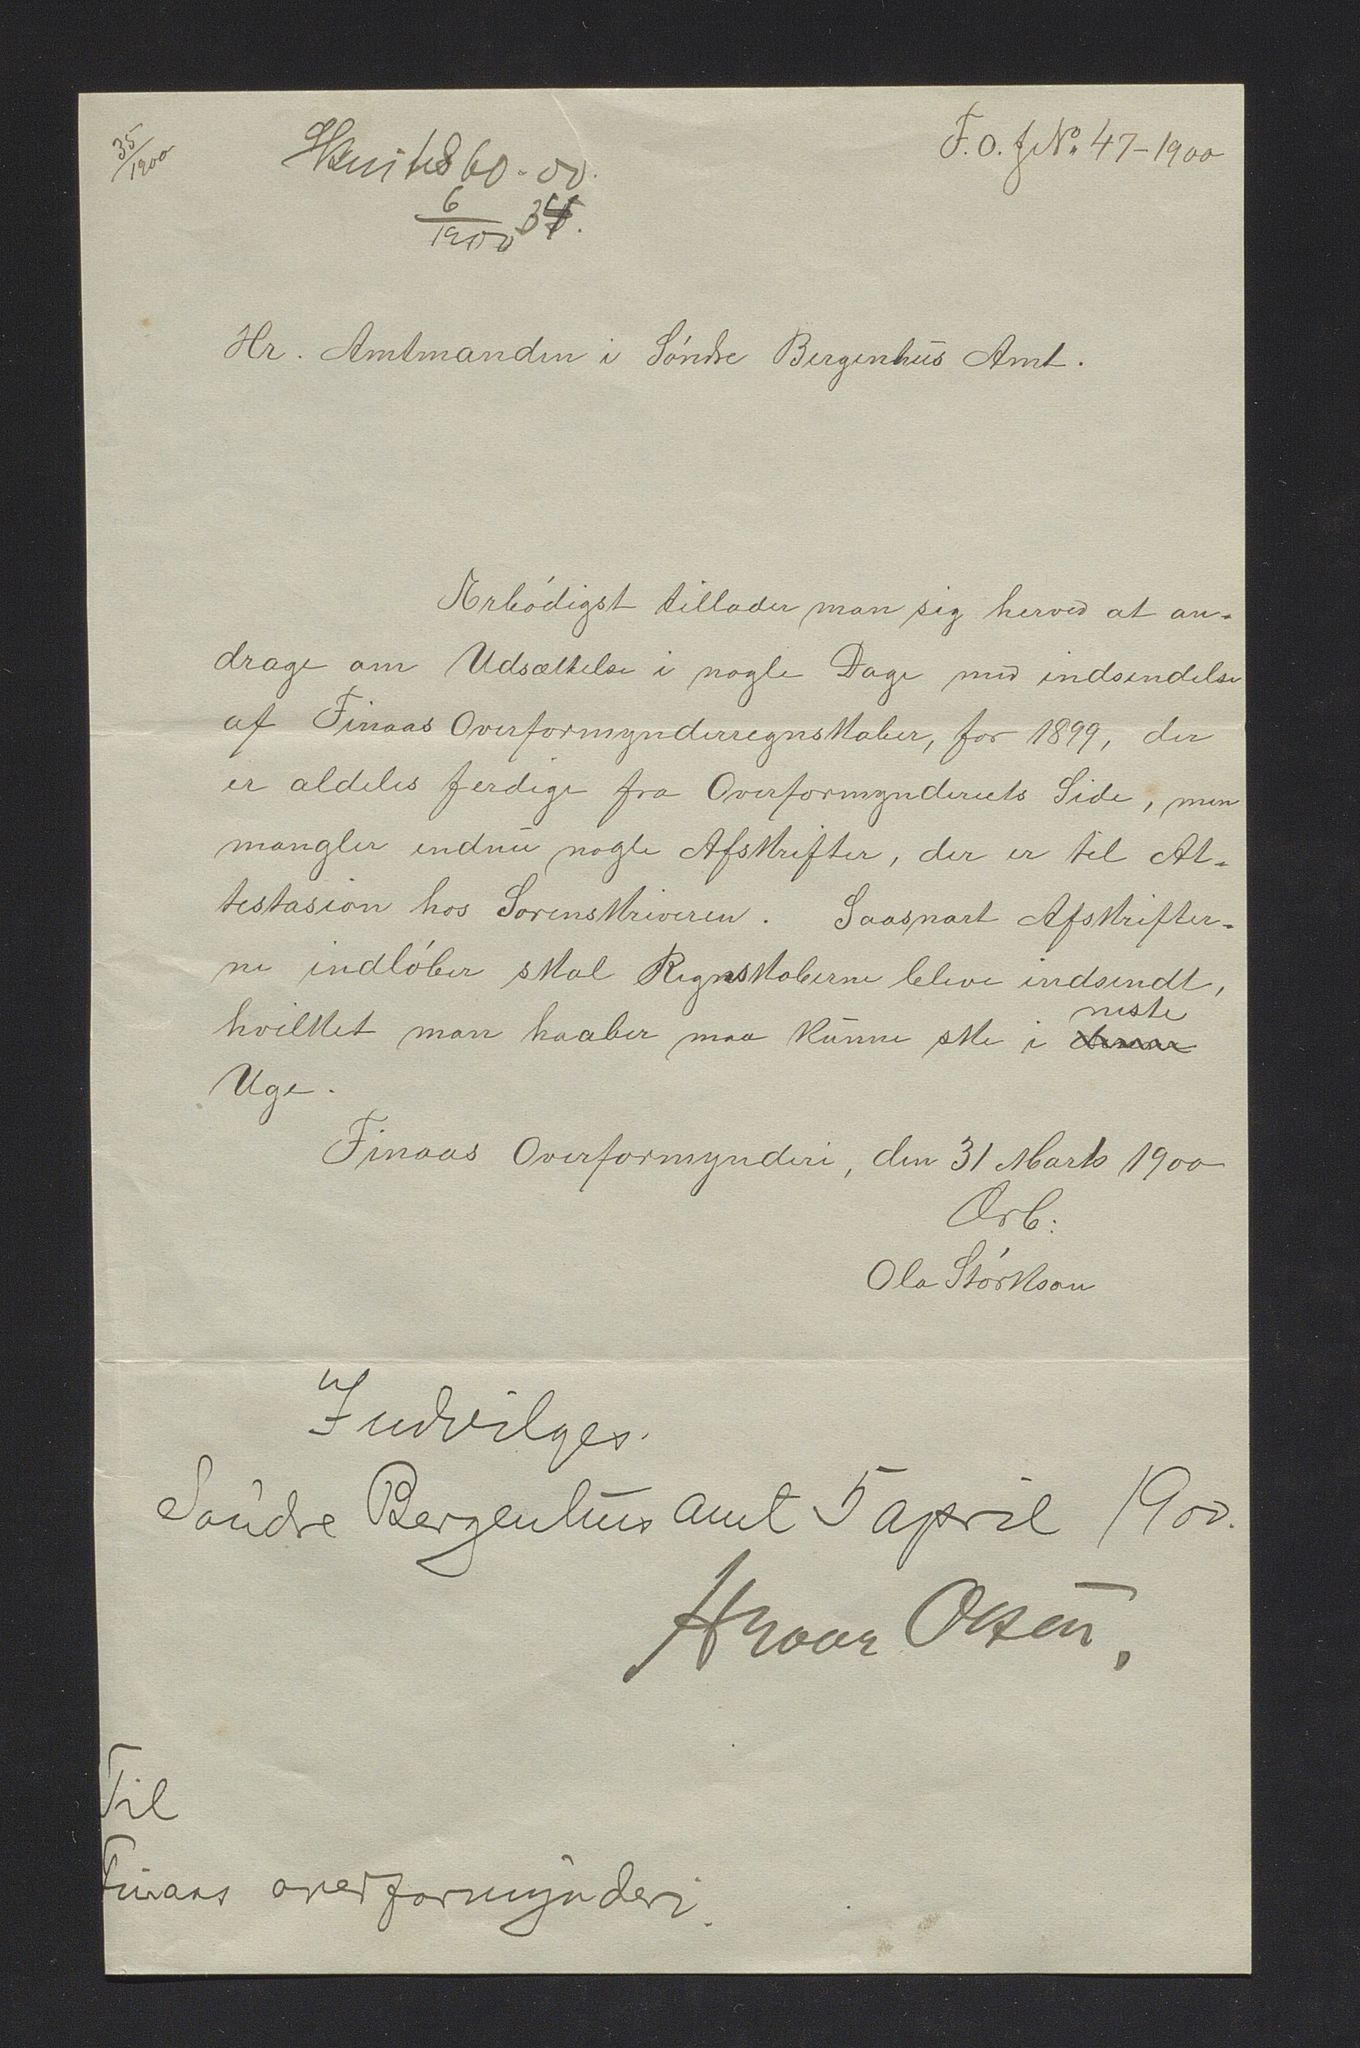 35/1900
F. O. J No. 47-1900
860-00.
6/1900 34.
Hr. Amtmanden i Söndre Bergenhus Amt.
Ærbödigst tillader man sig herved at an-
drage om Udsættelse i nogle Dage med indsendelse
af Finaas Overformynderregnskaber, for 1899, der
er aldeles ferdige fra Overformynderiets Side, men
mangler endnu nogle Afskrifter, der er til At-
testasion hos Sorenskriveren. Saasnart Afskrifter-
ne indlöber skal Regnskaberne bleve indsendt,
neste
hvilket man haaber maa kunne ske i denne
Uge.
Finaas Overformynderi, den 31 Marts 1900
Ærb:
Ola Störkson
Indvilges.
Söndre Bergenhus amt 5 april 1900.
Hroar Olsen,
Til
Finaas overformynderi.